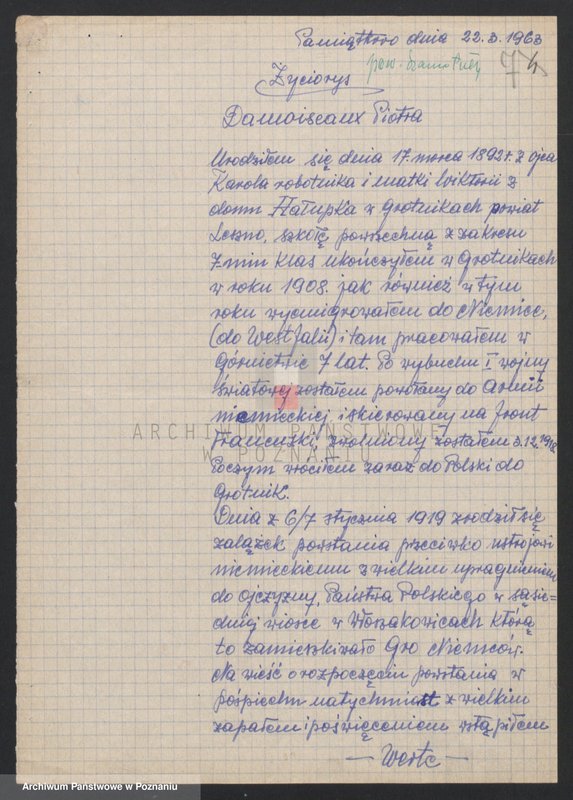 Pamiątkowo dnia 22.3.1963
pow. Szamotuły
74
Życiorys
Damoiseaux Piotra
Urodziłem się dnia 17. marca 1892 r. z ojca
Karola robotnika i matki Wiktorii z
domu Hałupka w Grotnikach powiat
Leszno, szkołę powszechną z zakresu
7-min klas ukończyłem w Grotnikach
w roku 1908. jak również w tym
roku wyemigrowałem do Niemiec,
(do Westfalii) i tam pracowałem w
Górnictwie 7 lat. Po wybuchu I wojny
światowej zostałem powołany do armii
niemieckiej, i skierowany na front
francuzki, zwolniony zostałem 3.12.1918
poczym wróciłem zaraz do Polski do
Grotnik.
Dnia z 6/7 stycznia 1919 zrodził się
zalążek powstania przeciwko ustrojowi
niemieckiemu z wielkim upragnieniem
do ojczyzny, Państwa Polskiego w sąsie=
dniej wiosce w Włoszakowicach którą
to zamieszkiwało Gro Niemców.
Na wieść o rozpoczęciu powstania w
pośpiechu natychmiast z wielkim
zapałem i poświęceniem wstąpiłem
ARCHIWUM PAŃSTWOWE
W POZNANIU
Archiwum Państwowe w Poznaniu